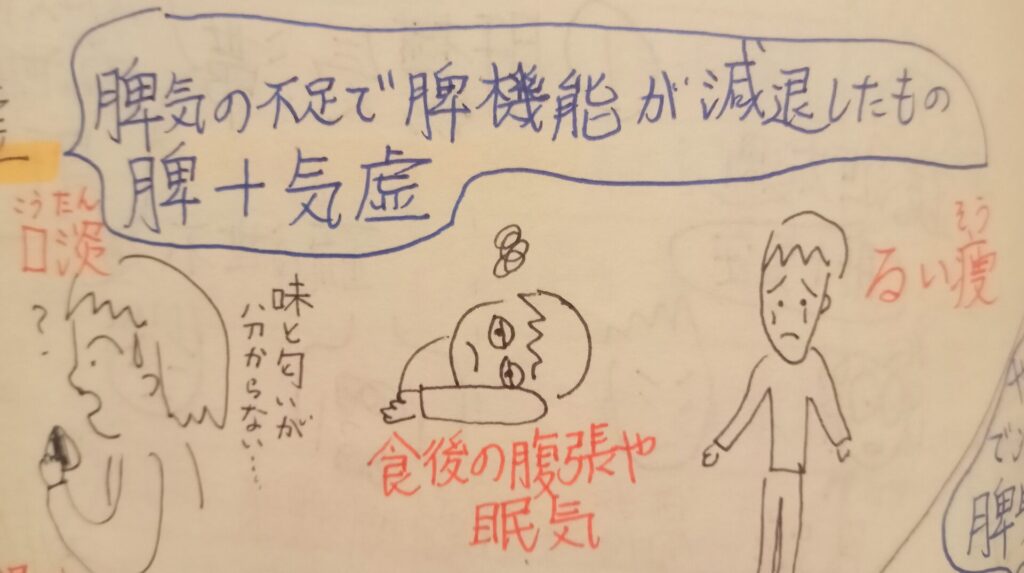 脾気の不足で脾機能が減退したもの
脾＋気虚
こうたん
口淡
?
味と匂いが
分からない…
食後の腹張や
眠気
そう
るい痩
で
脾